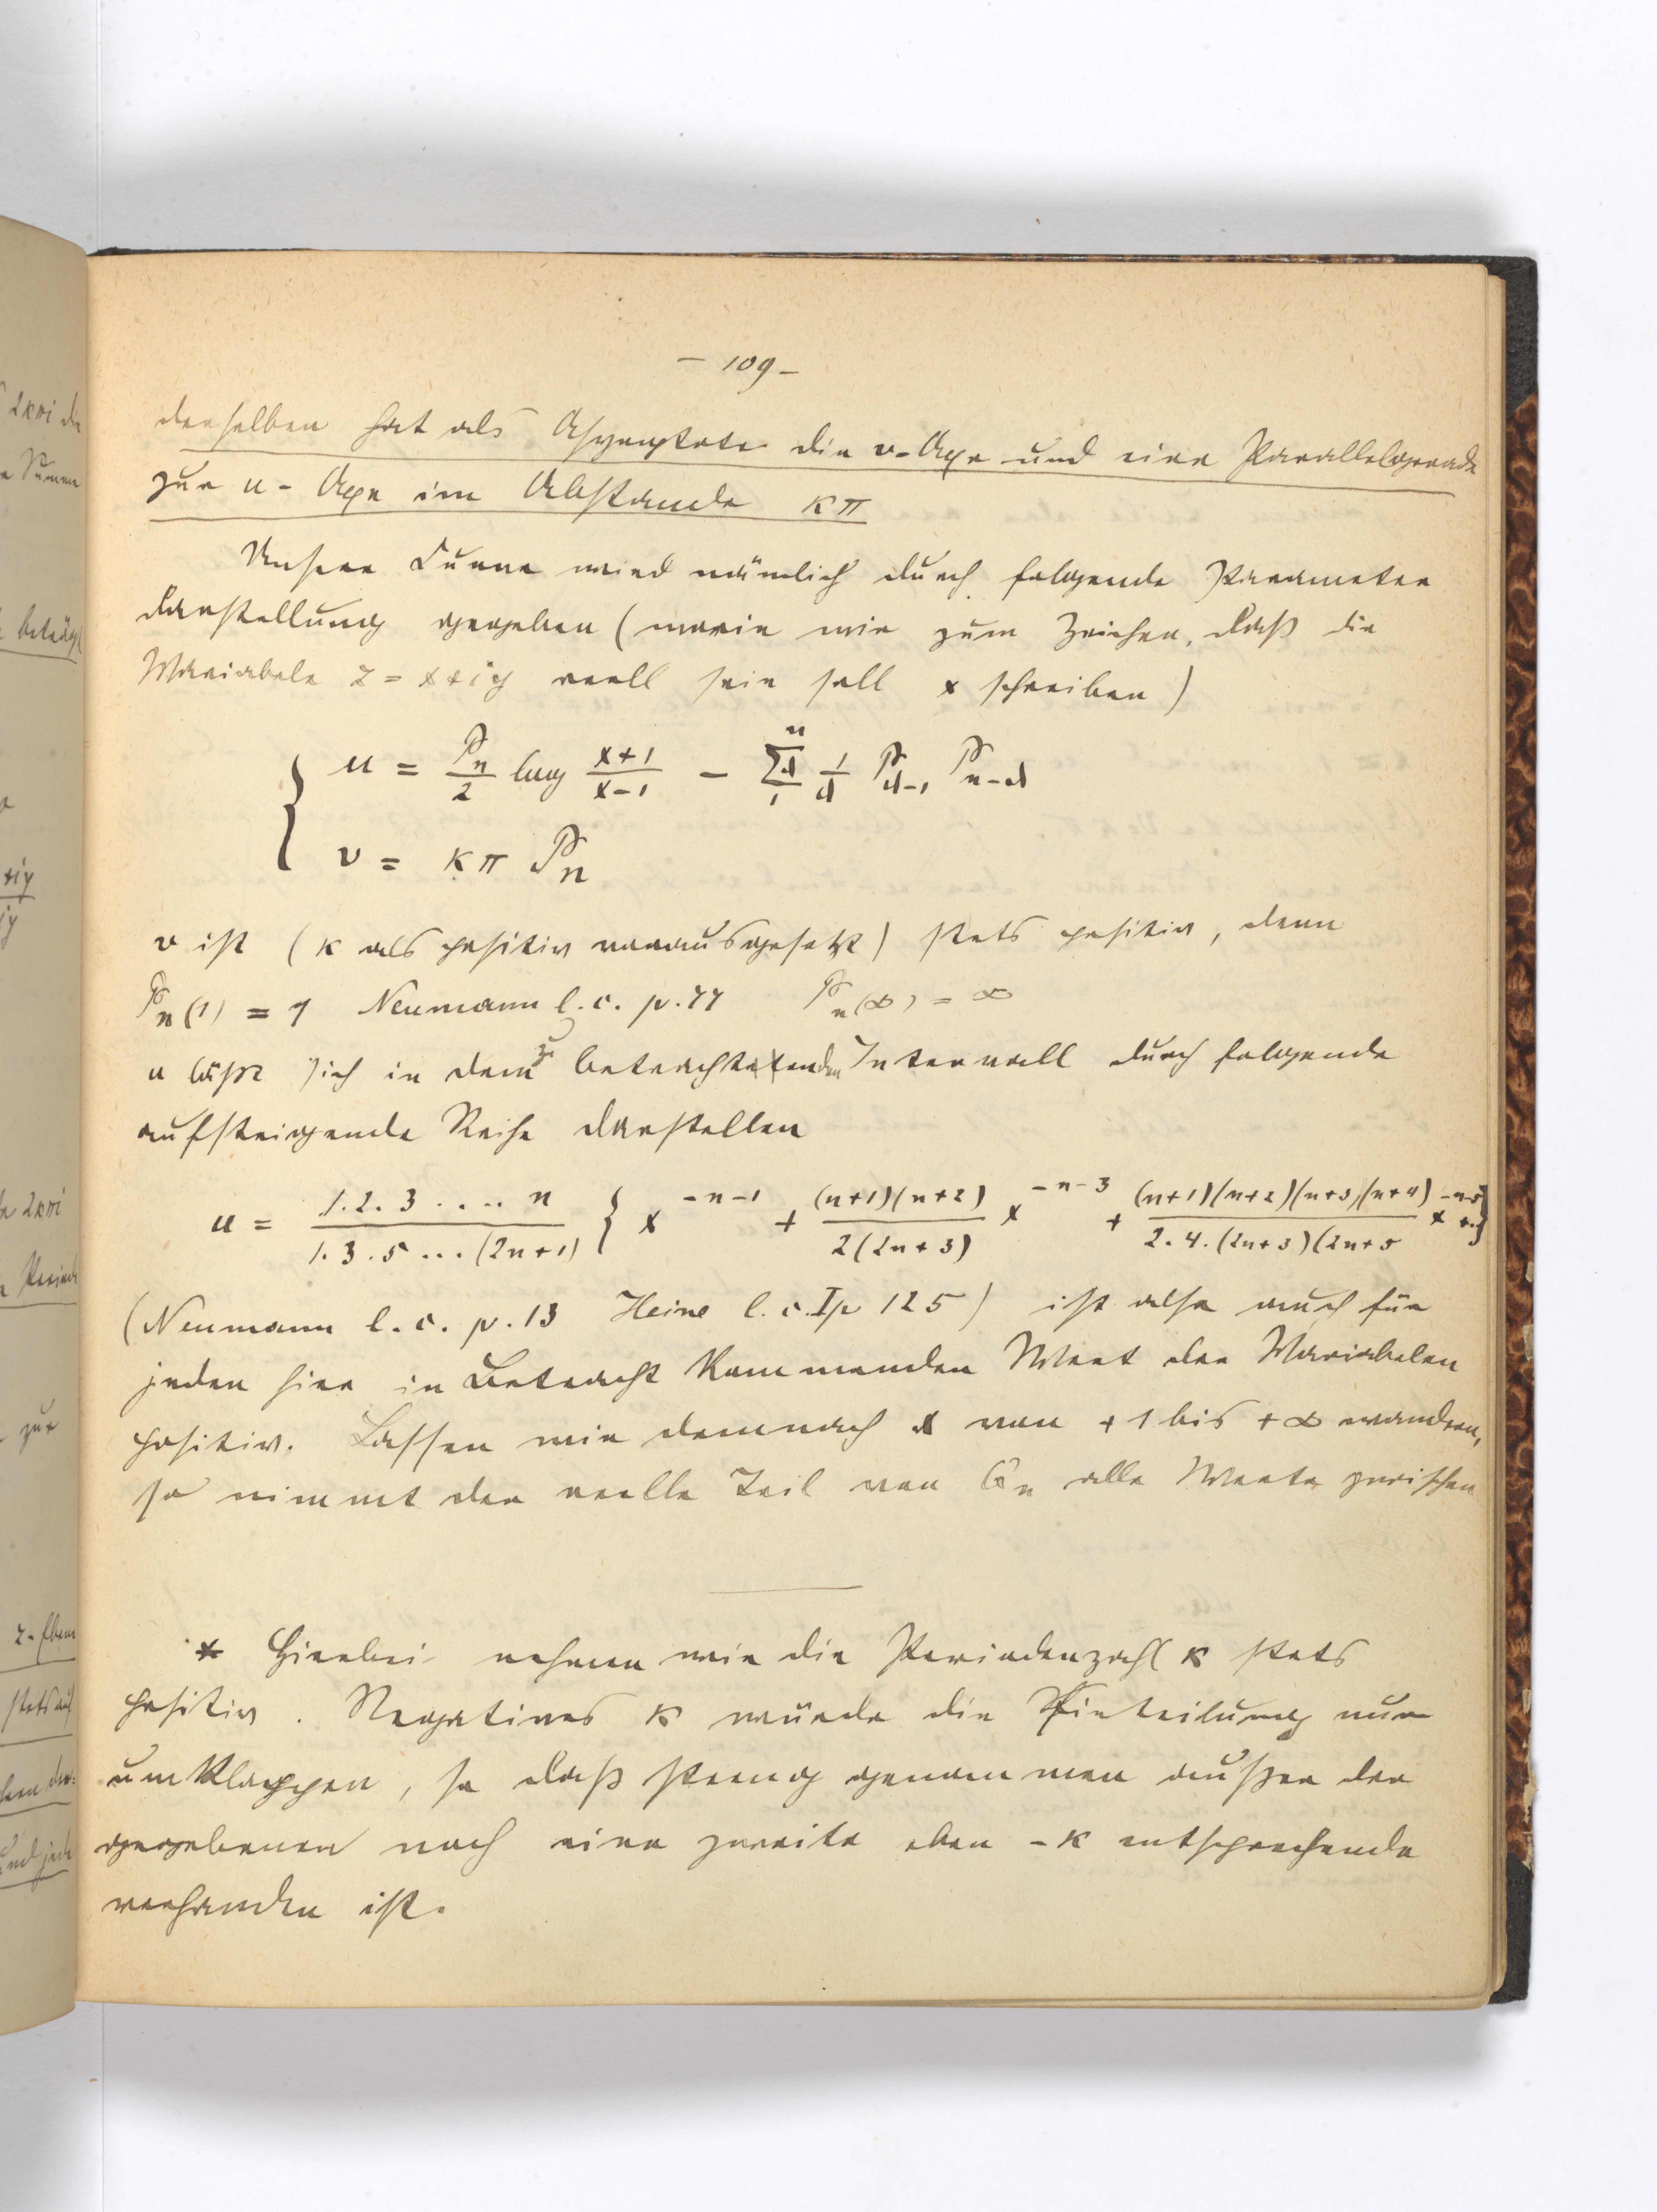 – 109 –
derselben hat als Asymptote die v-Axe und eine Parallelgerade
zur u-Axe im Abstande κπ
Unsere Curve wird nämlich durch folgende Parameter
darstellung gegeben (worin wir zum Zeichen, daß die
Variabele z = x+iy reell sein soll x schreiben)
u = P_n/2 log (x+1)/(x-1) – Σ_1^n 1/d P_{d-1} P_{n-d}
v = κπ P_n
v ist (κ als positiv vorausgesetzt) stets positiv, denn
P_n(1) = 1 Neumann l.c. p.77 P_n(∞) = ∞
u läßt sich in dem zu betrachtenden Intervall durch folgende
aufsteigende Reihe darstellen
u = 1.2.3....n / 1.3.5...(2n+1) { x^{-n-1} + (n+1)(n+2) / 2(2n+3) x^{-n-3} + (n+1)(n+2)(n+3)(n+4) / 2.4.(2n+3)(2n+5 x^{-n-5} +..}
(Neumann l.c. p.13 Heine l.c. I p 125) ist also auch für
jeden hier in Betracht kommenden Wert der Variabelen
positiv. Lassen wir demnach x von +1 bis +∞ wandern,
so nimmt der reelle Teil von Q_n alle Werte zwischen
* Hierbei nehmen wir die Periodenzahl κ stets
positiv. Negatives κ würde die Einteilung nur
umklappen, so daß streng genommen außer der
gegebenen noch eine zweite eben -κ entsprechende
vorhanden ist.
2κπi die
Summen
beträgt
+iy
iy
2κπi
Periode
zur
z-Ebene
stets auf
und jede